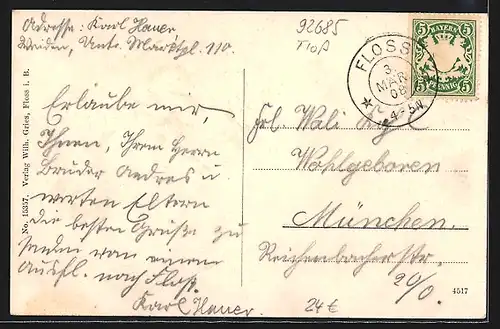 Adresse: Karl Hauer,
Weiden, Unt. Marktpl. 110.
92685
Floß
BAYERN
5 5
5 PFENNIG 5
FLOSS
3
MÄR
08
4-5N
Erlaube mir,
Ihnen, Ihrem Herrn
Bruder Andres u
werten Eltern
die besten Grüße zu
senden von einem
Ausfl. nach Floß.
Karl Hauer.
Frl Wali
Wohlgeboren
München.
Reichenbacherstr.
20/0.
24 €
4517
No. 15357. Verlag Wilh. Gries, Floss i. B.